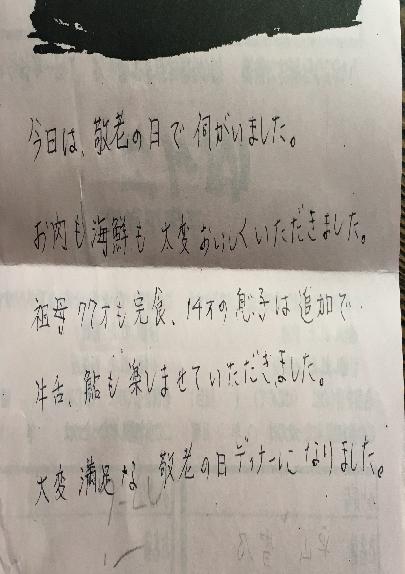 今日は、敬老の日で伺がいました。
お肉も海鮮も大変おいしくいただきました。
祖母77才も完食、14才の息子は追加で
牛舌、鮎も楽しませていただきました。
大変満足な敬老の日ディナーになりました。